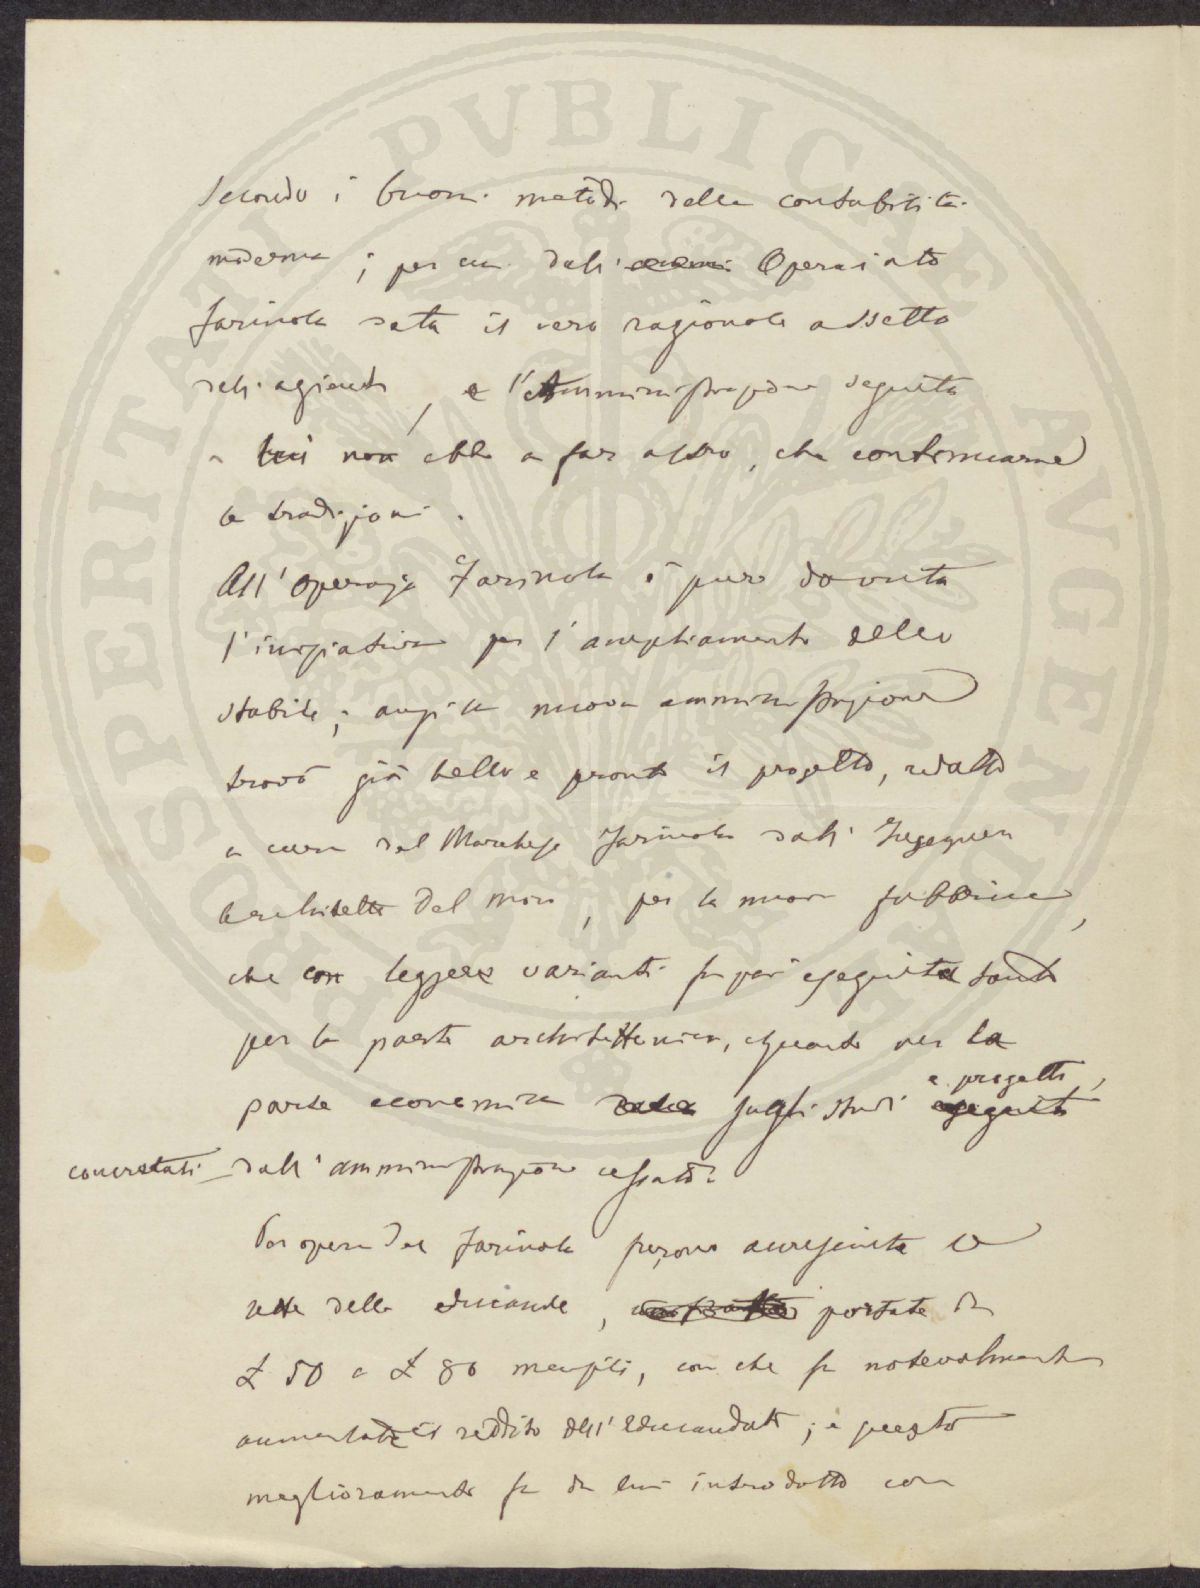 secondo i buoni metodi della contabilità
moderna; per cui dall' Operaiato
Farinola data il vero razionale assetto
dell'azienda, e l'Amministrazione seguita
a lui non ebbe a far altro, che continuarne
le tradizioni.
All'Operajo Farinola è pure dovuta
l'iniziativa per l'ampliamento dello
stabile; anzi la nuova amministrazione
trovò già bello e pronto il progetto, redatto
a cura del Marchese Farinola dall'Ingegnere
Architetto Del Moro, per la nuova fabbrica,
che con leggere varianti fu poi eseguita tanto
per la parte architettonica, quanto per la
parte economica sugli studi e progetti,
concretati dall'amministrazione cessata.
Per opera del Farinola furono accresciute le
rette delle educande, portate da
£ 50 a £ 80 mensili, con che fu notevolmente
aumentato il reddito dell'Educandato; e questo
miglioramento fu da lui introdotto con
PROSPERITATI PVBLICAE AVGENDAE